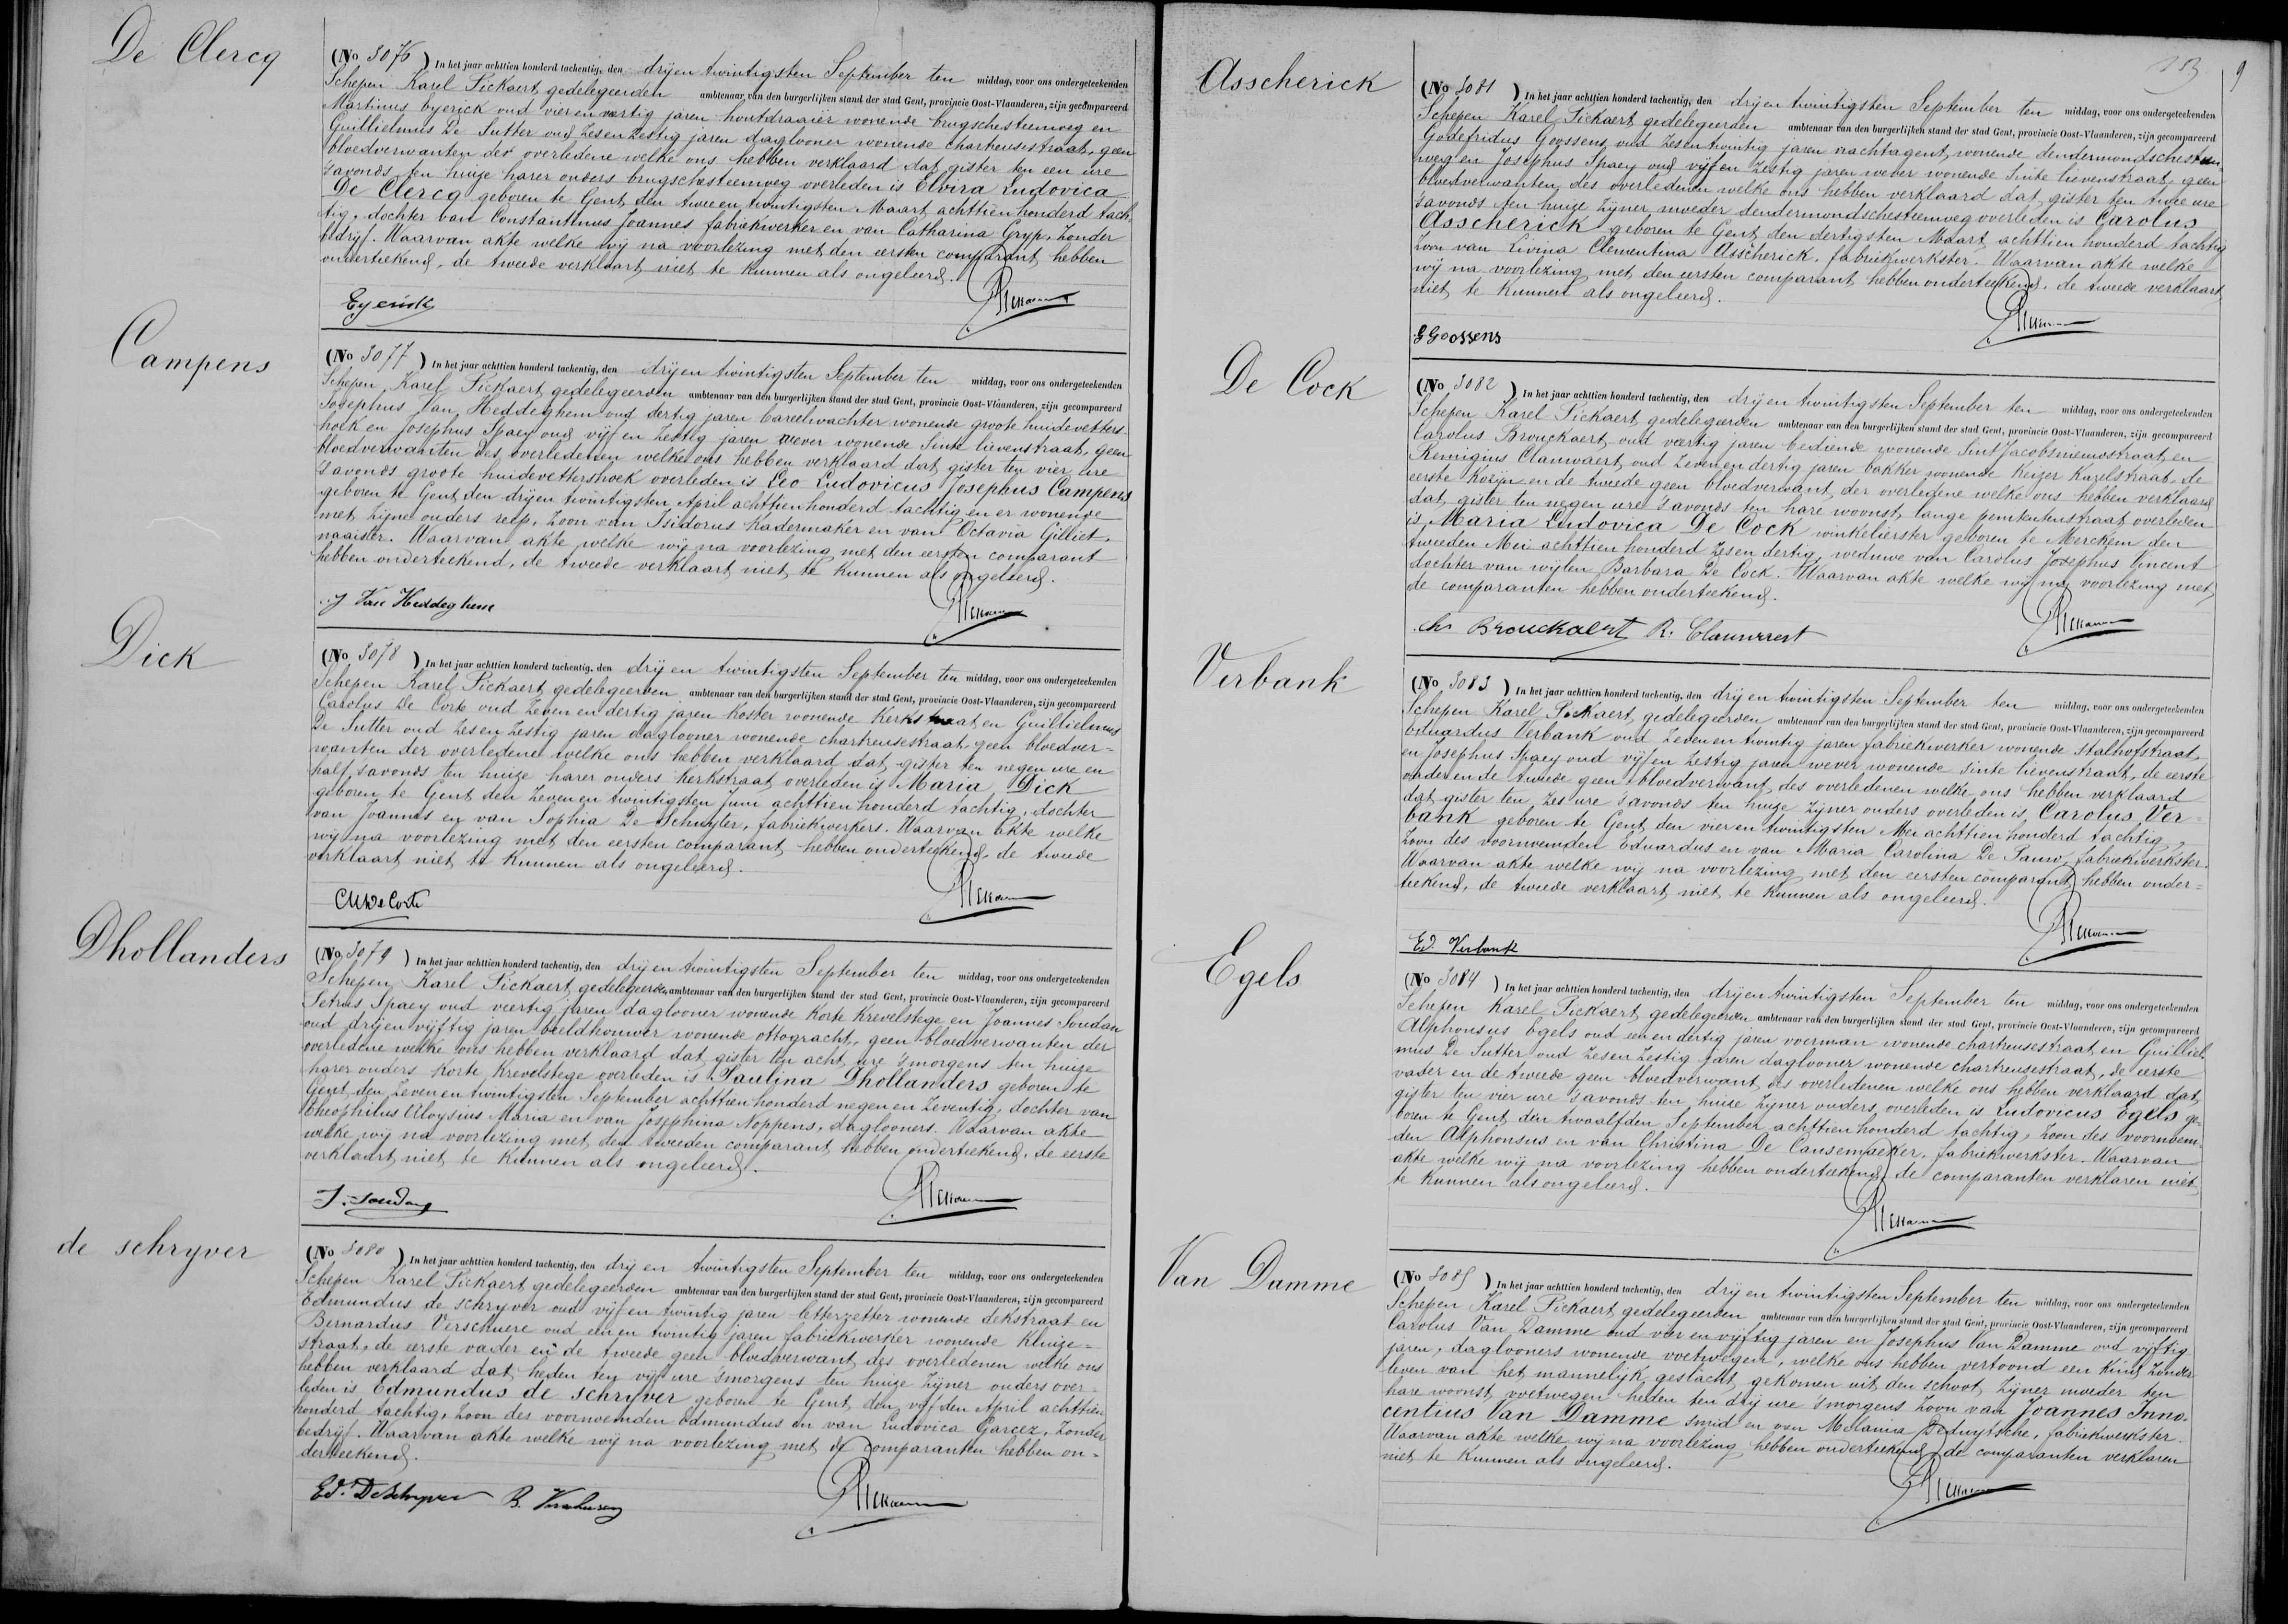 De Clercq
(No 3076) In het jaar achttien honderd tachentig, den drijen twintigsten September ten middag, voor ons ondergeteekenden
Schepen Karel Pickaert gedelegeerden ambtenaar van den burgerlijken stand der stad Gent, provincie Oost-Vlaanderen, zijn gecompareerd
Martinus Eyerick oud vieren veertig jaren houtdraaier wonende brugschesteenweg en
Guillielmus De Sutter oud zesen zestig jaren daglooner wonende Chartreusestraat, geen
bloedverwanten der overledene welke ons hebben verklaard dat gister ten een ure
's avonds ten huize harer ouders brugschesteenweg overleden is Elvira Ludovica
De Clercq geboren te Gent den tweeen twintigsten Maart achttien honderd tach-
tig, dochter van Constantinus Joannes fabriekwerker en van Catharina Gryp, zonder
bedrijf. Waarvan akte welke wij na voorlezing met den eersten comparant hebben
onderteekend, de tweede verklaart niet te kunnen als ongeleerd.
Eyerick
Campens
(No 3077) In het jaar achttien honderd tachentig, den drijen twintigsten September ten middag, voor ons ondergeteekenden
Schepen Karel Pickaert gedelegeerden ambtenaar van den burgerlijken stand der stad Gent, provincie Oost-Vlaanderen, zijn gecompareerd
Josephus Van Heddeghem oud dertig jaren bareelwachter wonende groote huidevetters-
hoek en Josephus Spaey oud vijf en zestig jaren wever wonende Sinte lievenstraat, geen
bloedverwanten des overledenen welke ons hebben verklaard dat gister ten vier ure
's avonds groote huidevettershoek overleden is Leo Ludovicus Josephus Campens
geboren te Gent den drijen twintigsten April achttien honderd tachtig en er wonende
met zijne ouders reep, zoon van Isidorus kadermaker en van Octavia Gilliet,
naaister. Waarvan akte welke wij na voorlezing met den eersten comparant
hebben onderteekend, de tweede verklaart niet te kunnen als ongeleerd.
J Van Heddeghem
Dick
(No 3078) In het jaar achttien honderd tachentig, den drij en twintigsten September ten middag, voor ons ondergeteekenden
Schepen Karel Pickaert gedelegeerden ambtenaar van den burgerlijken stand der stad Gent, provincie Oost-Vlaanderen, zijn gecompareerd
Carolus De Corte oud zeven en dertig jaren koster wonende Kerkstraat en Guillielmus
De Sutter oud zesen zestig jaren daglooner wonende chartreusestraat, geen bloedver-
wanten der overledene welke ons hebben verklaard dat gister ten negen ure en
half 's avonds ten huize harer ouders Kerkstraat overleden is Maria Dick
geboren te Gent den zevenen twintigsten Juni achttien honderd tachtig, dochter
van Joannes en van Sophia De Schuyter, fabriekwerkers. Waarvan akte welke
wij na voorlezing met den eersten comparant hebben onderteekend, de tweede
verklaart niet te kunnen als ongeleerd.
Dhollanders
(No 3079) In het jaar achttien honderd tachentig, den drijen twintigsten September ten middag, voor ons ondergeteekenden
Schepen Karel Pickaert gedelegeerden ambtenaar van den burgerlijken stand der stad Gent, provincie Oost-Vlaanderen, zijn gecompareerd
Petrus Spaey oud veertig jaren daglooner wonende Korte Krevelstege en Joannes Soudan
oud drijen vijftig jaren beeldhouwer wonende ottogracht, geen bloedverwanten der
overledene welke ons hebben verklaard dat gister ten acht ure 's morgens ten huize
harer ouders Korte Krevelstege overleden is Paulina Dhollanders geboren te
Gent den zevenen twintigsten September achttien honderd negen en zeventig, dochter van
Theophilus Aloysius Maria en van Josephina Noppens, daglooners. Waarvan akte
welke wij na voorlezing met den tweeden comparant hebben onderteekend, de eerste
verklaart niet te kunnen als ongeleerd.
J. Soudan
de schryver
(No 3080) In het jaar achttien honderd tachentig, den drij en twintigsten September ten middag, voor ons ondergeteekenden
Schepen Karel Pickaert gedelegeerden ambtenaar van den burgerlijken stand der stad Gent, provincie Oost-Vlaanderen, zijn gecompareerd
Edmundus de schryver oud vijf en twintig jaren letterzetter wonende dekstraat en
Bernardus Verschuere oud eenen twintig jaren fabriekwerker wonende Kluize-
straat, de eerste vader en de tweede geen bloedverwant des overledenen welke ons
hebben verklaard dat heden ten vijf ure 's morgens ten huize zijner ouders over-
leden is Edmundus de schryver geboren te Gent den vijfden April achttien
honderd tachtig, zoon des voornoemden Edmundus en van Ludovica Garcez, zonder
bedrijf. Waarvan akte welke wij na voorlezing met de comparanten hebben on-
derteekend.
Ed. DeSchryver B. Verschuere
Asscherick
(No 3081) In het jaar achttien honderd tachentig, den drijen twintigsten September ten middag, voor ons ondergeteekenden
Schepen Karel Pickaert gedelegeerden ambtenaar van den burgerlijken stand der stad Gent, provincie Oost-Vlaanderen, zijn gecompareerd
Godefridus Goossens oud zesen twintig jaren nachtagent wonende dendermondschesteen-
weg en Josephus Spaey oud vijf en zestig jaren wever wonende Sinte lievenstraat geen
bloedverwanten des overledenen welke ons hebben verklaard dat gister ten twee ure
's avonds ten huize zijner moeder dendermondschesteenweg overleden is Carolus
Asscherick geboren te Gent den dertigsten Maart achttien honderd tachtig
zoon van Livina Clementina Asscherick, fabriekwerkster. Waarvan akte welke
wij na voorlezing met den eersten comparant hebben onderteekend, de tweede verklaart
niet te kunnen als ongeleerd.
G Goossens
De Cock
(No 3082) In het jaar achttien honderd tachentig, den drijen twintigsten September ten middag, voor ons ondergeteekenden
Schepen Karel Pickaert gedelegeerden ambtenaar van den burgerlijken stand der stad Gent, provincie Oost-Vlaanderen, zijn gecompareerd
Carolus Brouckaert oud veertig jaren bediende wonende Sint Jacobsnieuwstraat en
Remigius Clauwaert oud zevenen dertig jaren bakker wonende Keizer Karelstraat, de
eerste kozijn en de tweede geen bloedverwant der overledene welke ons hebben verklaard
dat gister ten negen ure 's avonds ten hare woonst, lange penitentenstraat overleden
is Maria Ludovica De Cock winkelierster geboren te Merckem den
tweeden Mei achttien honderd zesen dertig, weduwe van Carolus Josephus Vincent
dochter van wijlen Barbara De Cock. Waarvan akte welke wij na voorlezing met
de comparanten hebben onderteekend.
Ch. Brouckaert R. Clauwaert
Verbank
(No 3083) In het jaar achttien honderd tachentig, den drij en twintigsten September ten middag, voor ons ondergeteekenden
Schepen Karel Pickaert gedelegeerden ambtenaar van den burgerlijken stand der stad Gent, provincie Oost-Vlaanderen, zijn gecompareerd
Eduardus Verbank oud zevenen twintig jaren fabriekwerker wonende stalhofstraat,
en Josephus Spaey oud vijf en zestig jaren wever wonende Sinte lievenstraat, de eerste
vader en de tweede geen bloedverwant des overledenen welke ons hebben verklaard
dat gister ten zes ure 's avonds ten huize zijner ouders overleden is, Carolus Ver-
bank geboren te Gent den vieren twintigsten Mei achttien honderd tachtig,
zoon des voornoemden Eduardus en van Maria Carolina De Pauw, fabriekwerkster.
Waarvan akte welke wij na voorlezing met den eersten comparant hebben onder-
teekend, de tweede verklaart niet te kunnen als ongeleerd.
Ed. Verbank
Egels
(No 3084) In het jaar achttien honderd tachentig, den drijen twintigsten September ten middag, voor ons ondergeteekenden
Schepen Karel Pickaert gedelegeerden ambtenaar van den burgerlijken stand der stad Gent, provincie Oost-Vlaanderen, zijn gecompareerd
Alphonsus Egels oud eenen dertig jaren voerman wonende chartreusestraat en Guilliel-
mus De Sutter oud zesen zestig jaren daglooner wonende chartreusestraat, de eerste
vader en de tweede geen bloedverwant des overledenen welke ons hebben verklaard dat
gister ten vier ure 's avonds ten huize zijner ouders overleden is Ludovicus Egels ge-
boren te Gent den twaalfden September achttien honderd tachtig, zoon des voornoem-
den Alphonsus en van Christina De Causemaeker, fabriekwerkster. Waarvan
akte welke wij na voorlezing hebben onderteekend, de comparanten verklaren niet
te kunnen als ongeleerd.
Van Damme
(No 3085) In het jaar achttien honderd tachentig, den drij en twintigsten September ten middag, voor ons ondergeteekenden
Schepen Karel Pickaert gedelegeerden ambtenaar van den burgerlijken stand der stad Gent, provincie Oost-Vlaanderen, zijn gecompareerd
Carolus Van Damme oud vier en vijftig jaren en Josephus Van Damme oud vijftig
jaren, daglooners wonende voetwegen, welke ons hebben vertoond een kind zonder
leven van het mannelijk geslacht gekomen uit den schoot zijner moeder ten
hare woonst voetwegen heden ten drij ure 's morgens zoon van Joannes Inno-
centius Van Damme smid en van Melania Deduytsche, fabriekwerkster.
Waarvan akte welke wij na voorlezing hebben onderteekend, de comparanten verklaren
niet te kunnen als ongeleerd.